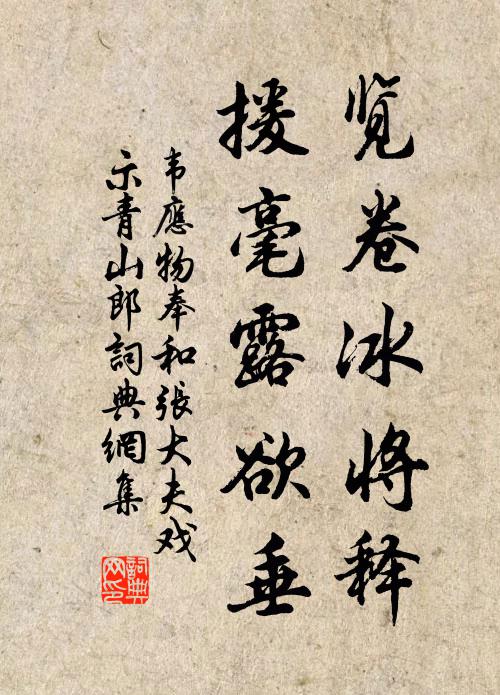 览卷冰将释
援毫露欲垂
韦應物奉和張大夫戏
示青山郎詞典網集
詞典
网印